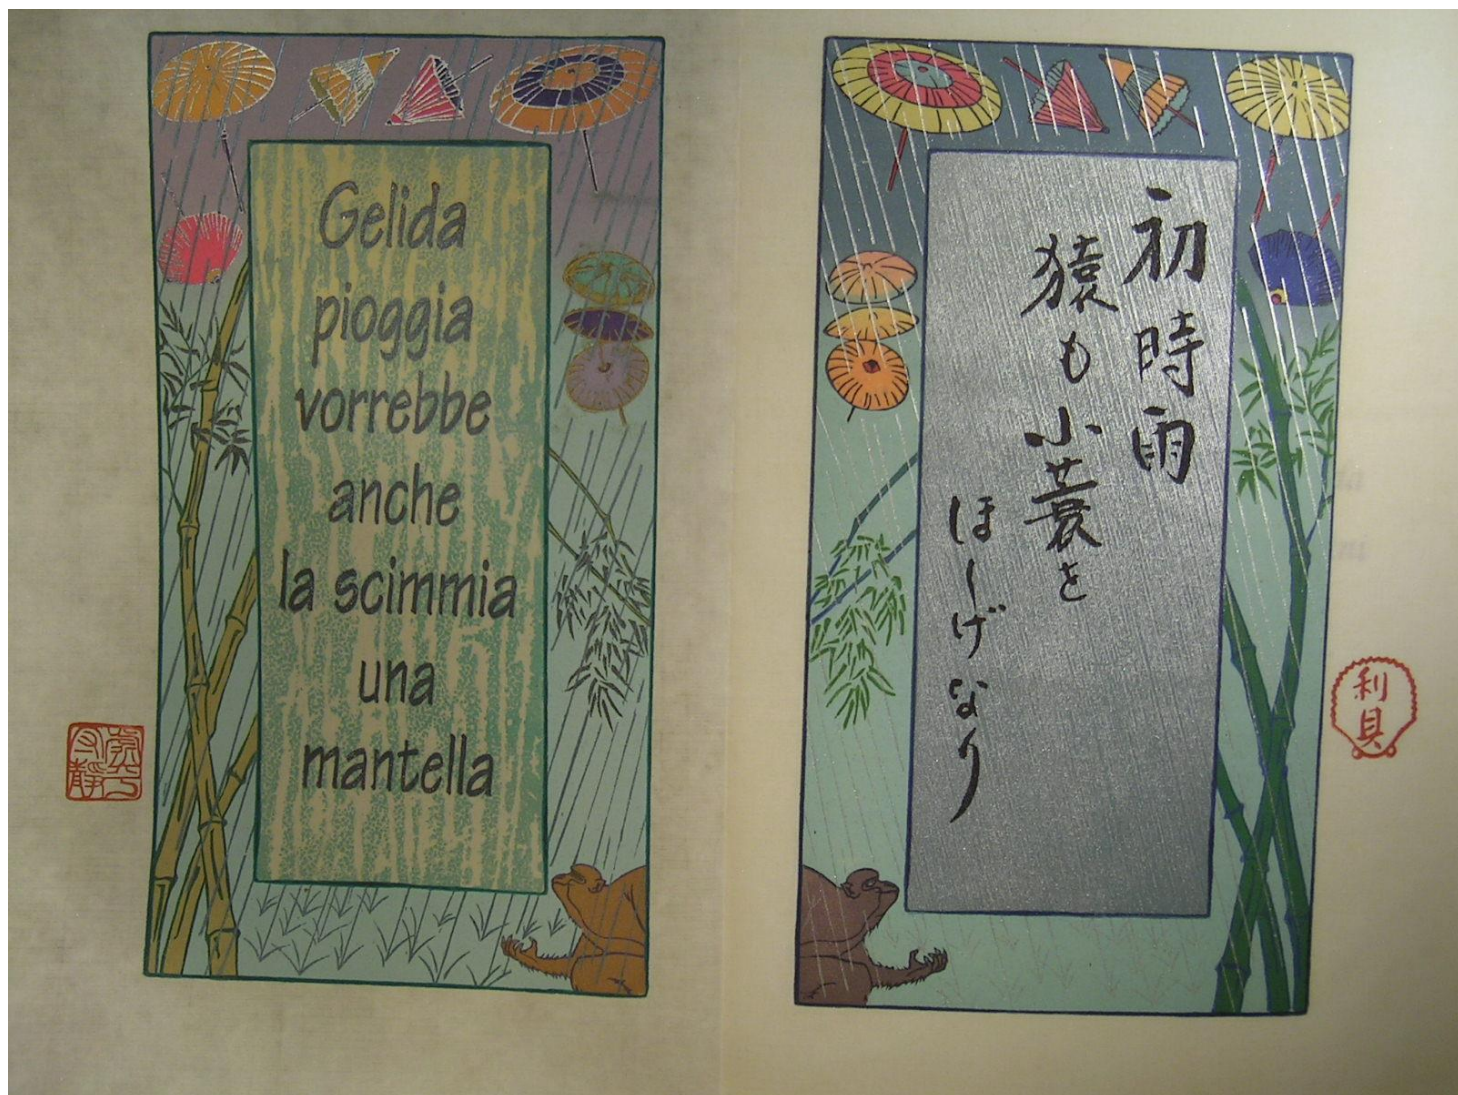 Gelida
pioggia
vorrebbe
anche
la scimmia
una
mantella
初時雨
猿も小蓑を
ほしげなり
利貝